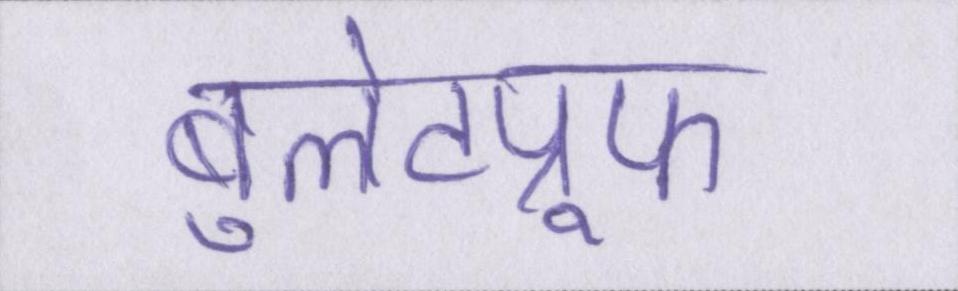 बुलेटप्रूफ